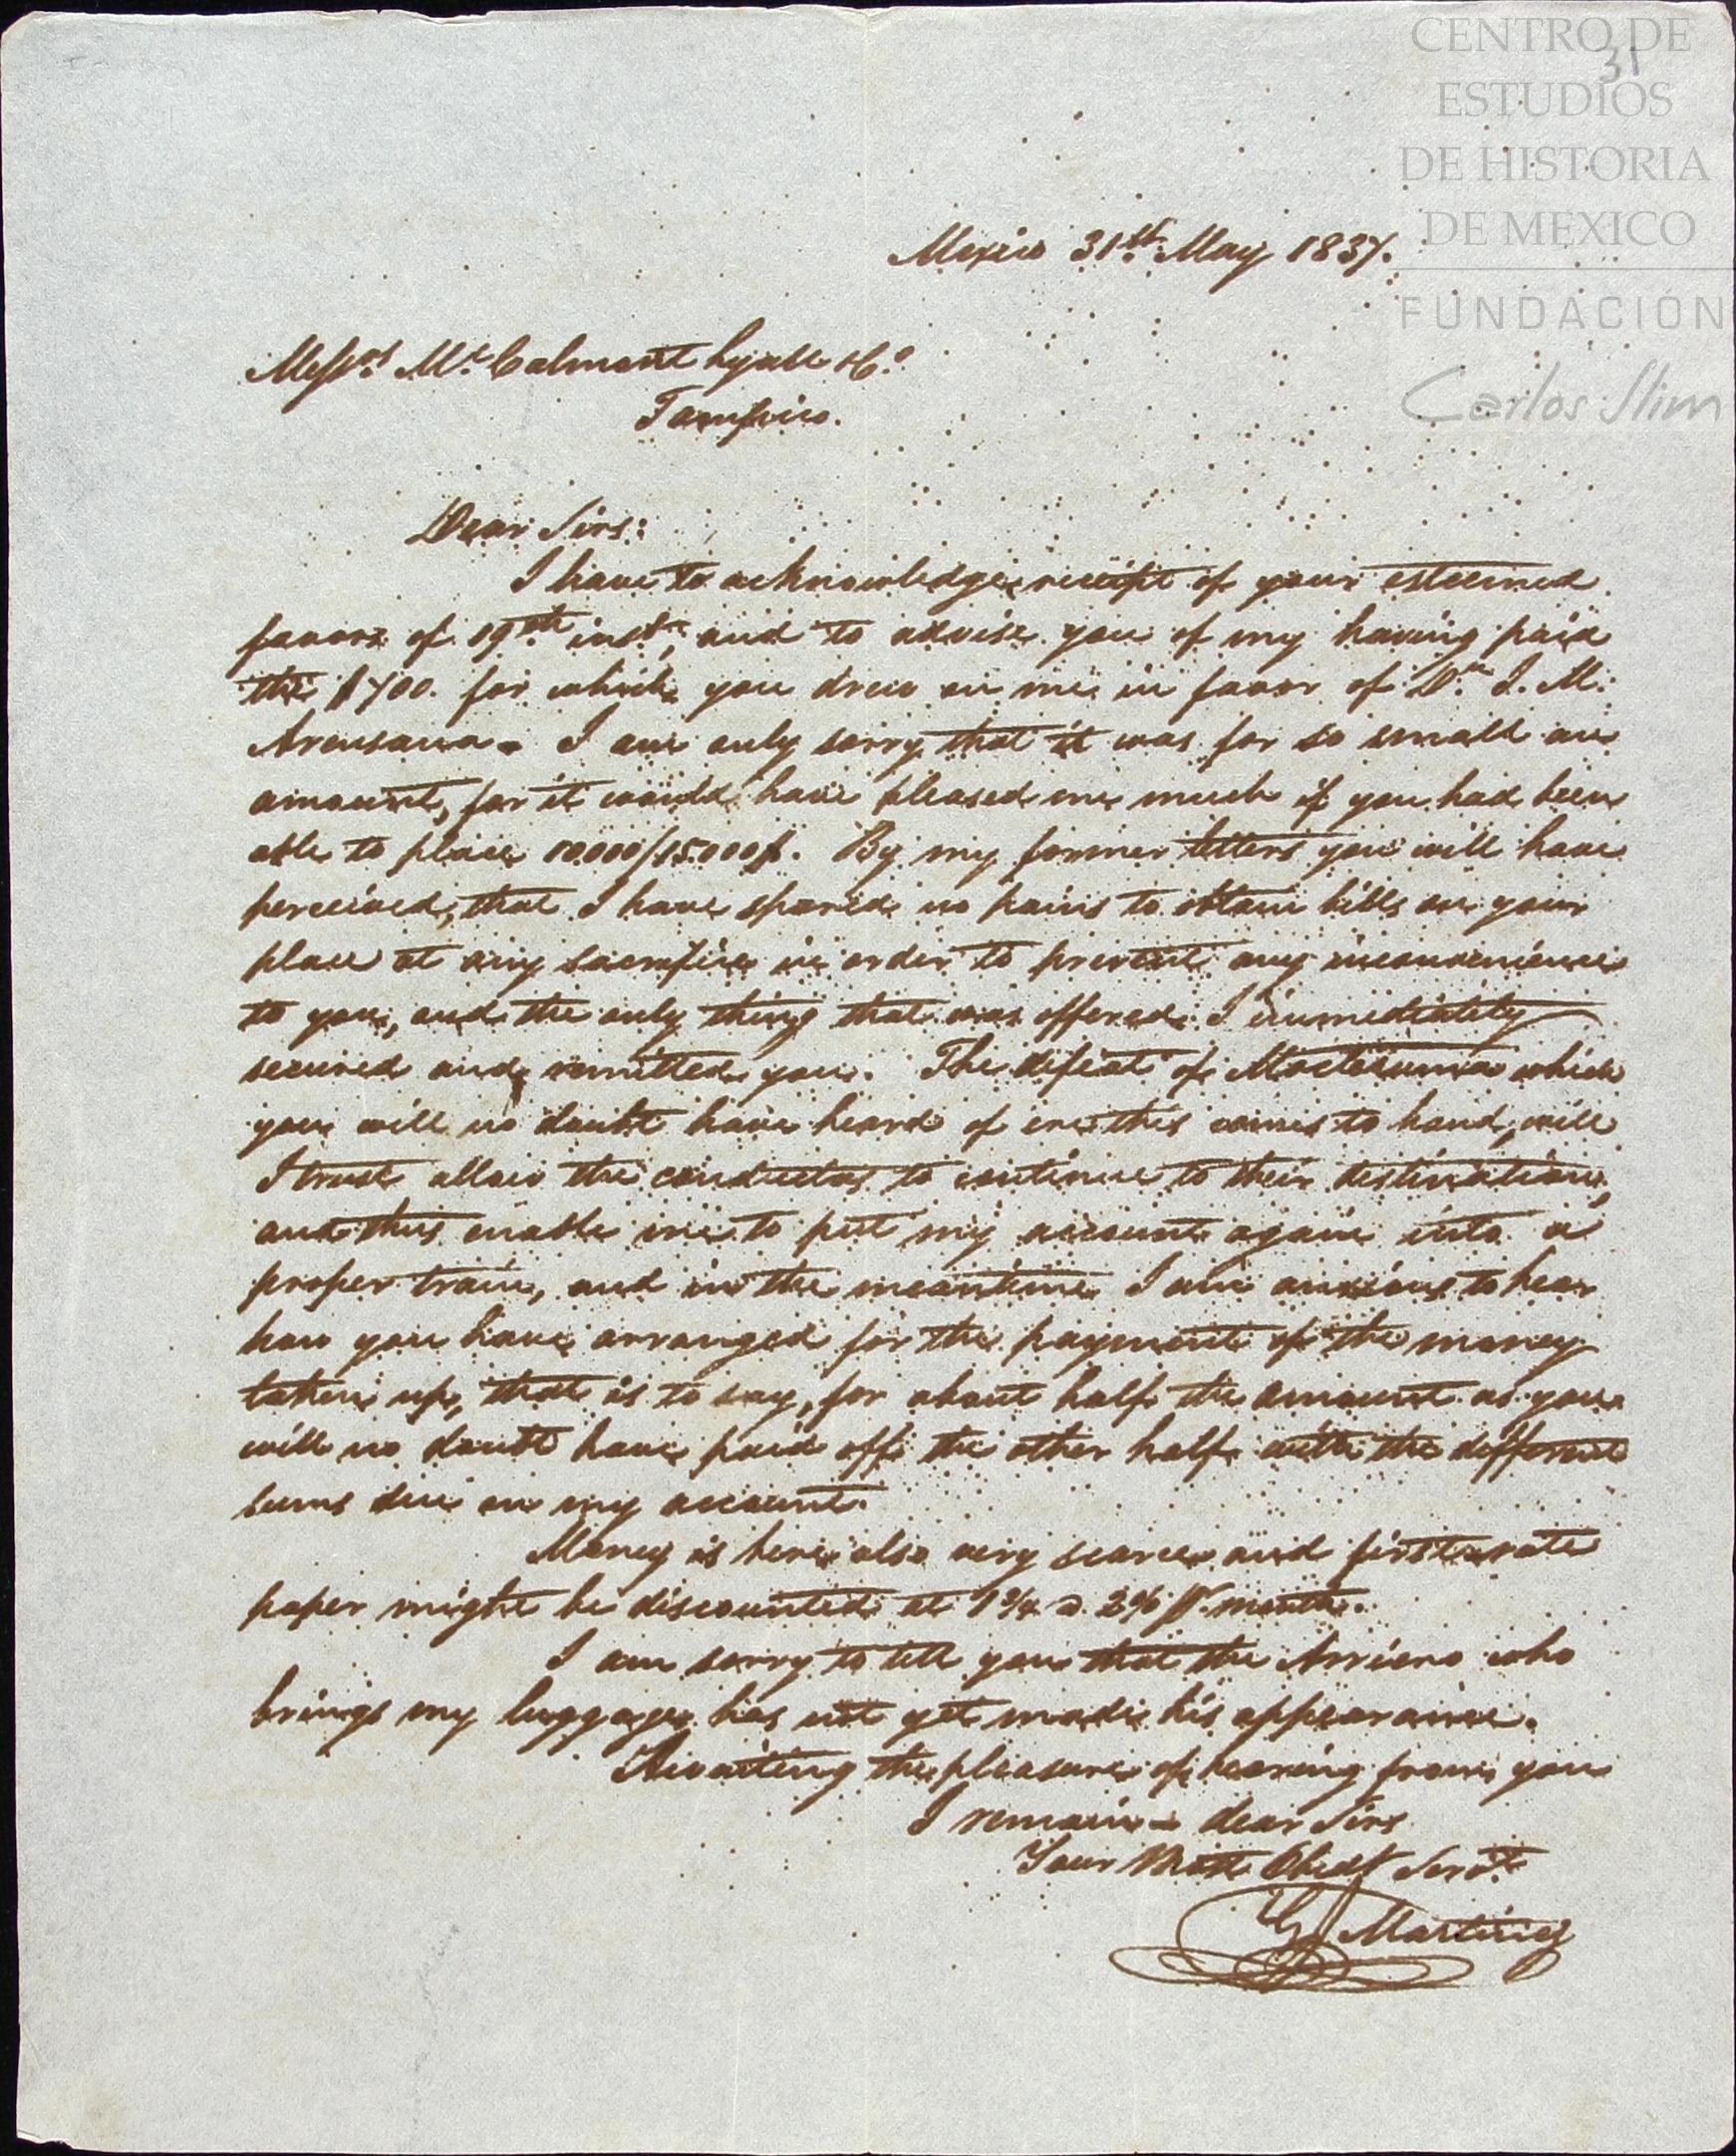 CENTRO DE
ESTUDIOS
DE HISTORIA
DE MEXICO
FUNDACIÓN
Carlos Slim
31
Mexico 31st. May 1837.
Messrs. Mc. Calmont Lyall & Co.
Tampico.
Dear Sirs:
I have to acknowledge receipt of your esteemed
favors of 19th. inst., and to advise you of my having paid
the $700. for which you drew on me in favor of Dn. J. M.
I am only sorry that it was for so small an
amount, for it would have pleased me much if you had been
able to place 10.000/15.000$. By my former letters you will have
perceived, that I have spared no pains to obtain bills on your
place at any sacrifice in order to prevent any inconvenience
to you, and the only thing that was offered I immediately
secured and remitted you. The defeat of Moctesuma which
you will no doubt have heard of ere this comes to hand, will
I trust allow the conductas to continue to their destination,
and thus enable me to put my account again into a
proper train, and in the meantime I am anxious to hear
how you have arranged for the payment of the money
taken up, that is to say, for about half the amount as you
will no doubt have paid off the other half with the different
sums due on my account.
Money is here also very scarce and first rate
paper might be discounted at 1¾ a 2% pr. month.
I am sorry to tell you that the Arriero who
brings my luggage has not yet made his appearance.
Awaiting the pleasure of hearing from you
I remain - dear Sirs
Your Most Obedt Servt.
G. Martinez